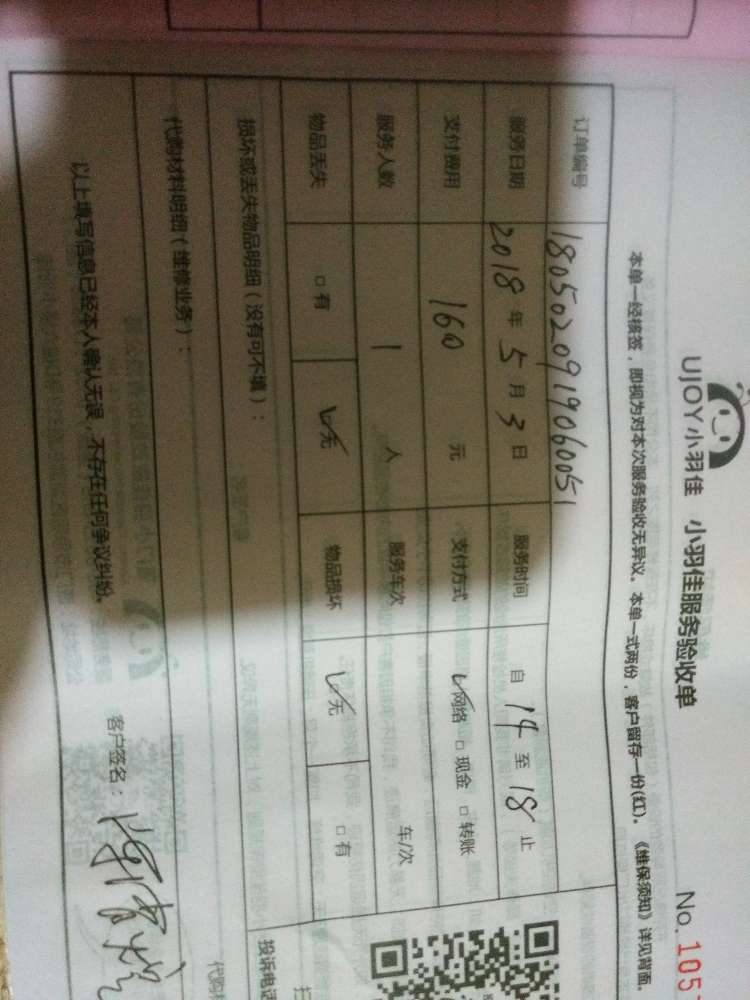 UJOY小羽佳 小羽佳服务验收单 No.105
本单一经核签，即视为对本次服务验收无异议。本单一式两份，客户留存一份(红)。《维保须知》详见背面。
订单编号 1805020919060051
服务日期 2018年5月3日 服务时间 自14至18止
支付费用 160元 支付方式 网络 现金 转账
服务人数 1人 服务车次 车/次
物品丢失 有 无 物品损坏 无 有
损坏或丢失物品明细（没有可不填）：
投诉电话
代购材料明细（维修业务）：
以上填写信息已经本人确认无误，不存在任何争议纠纷。
客户签名：